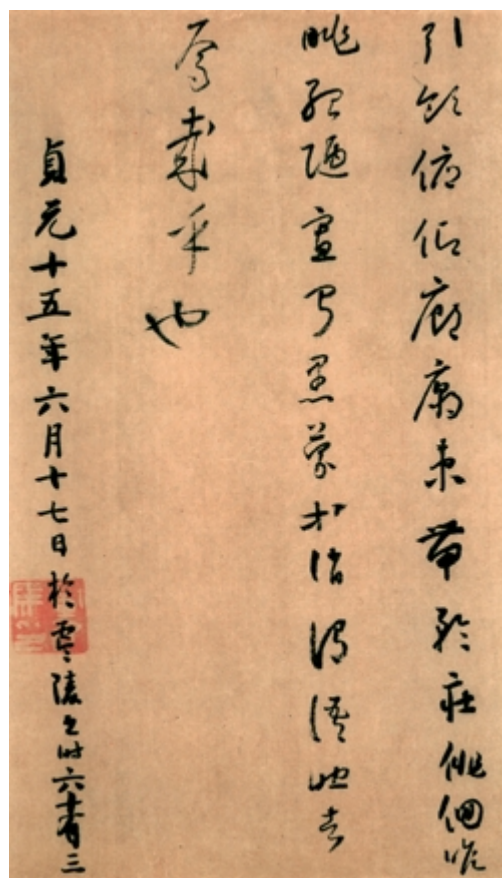 引領俯仰廊廟束帶矜莊徘徊瞻
眺孤陋寡聞愚蒙等誚謂語助者
焉哉乎也
貞元十五年六月十七日於零陵書時六十有三